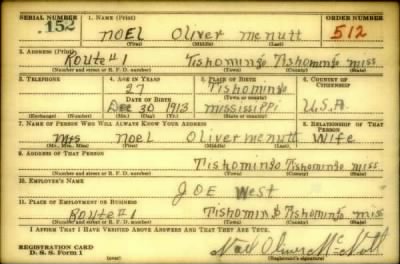 SERIAL NUMBER 1. NAME (Print) ORDER NUMBER
152 NOEL Oliver McNutt 512
(First) (Middle) (Last)
2. ADDRESS (Print)
Route #1 Tishomingo Tishomingo miss
(Number and street or R. F. D. number) (Town) (County) (State)
3. TELEPHONE 4. AGE IN YEARS 5. PLACE OF BIRTH 6. COUNTRY OF CITIZENSHIP
27 Tishomingo
DATE OF BIRTH (Town or county)
Dec 30 1913 Mississippi U.S.A.
(Exchange) (Number) (Mo.) (Day) (Yr.) (State or country)
7. NAME OF PERSON WHO WILL ALWAYS KNOW YOUR ADDRESS 8. RELATIONSHIP OF THAT PERSON
Mrs NOEL Oliver McNutt Wife
(Mr., Mrs., Miss) (First) (Middle) (Last)
9. ADDRESS OF THAT PERSON
Tishomingo Tishomingo miss
(Number and street or R. F. D. number) (Town) (County) (State)
10. EMPLOYER'S NAME
JOE West
11. PLACE OF EMPLOYMENT OR BUSINESS
Route #1 Tishomingo Tishomingo miss
(Number and street or R. F. D. number) (Town) (County) (State)
I AFFIRM THAT I HAVE VERIFIED ABOVE ANSWERS AND THAT THEY ARE TRUE.
REGISTRATION CARD
D. S. S. Form 1 (over) Noel Oliver McNutt
(Registrant's signature)